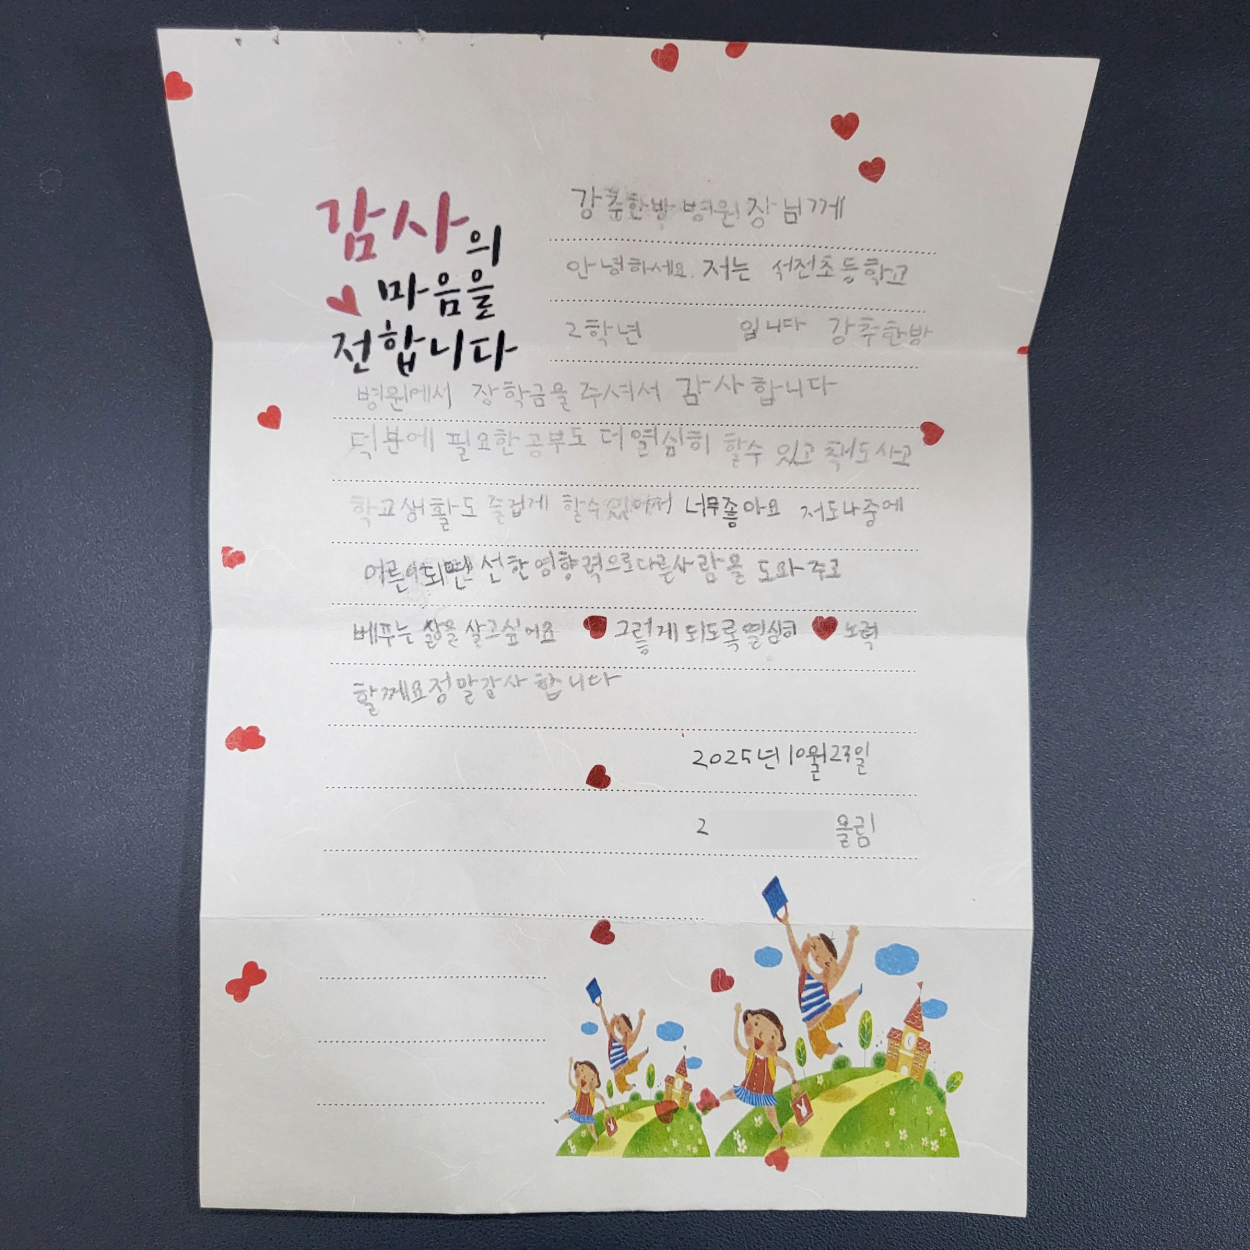 감사의
마음을
전합니다
강추한방병원장님께
안녕하세요. 저는 석전초등학교
2학년 입니다 강추한방
병원에서 장학금을 주셔서 감사합니다
덕분에 필요한 공부도 더 열심히 할수 있고 책도 사고
학교생활도 즐겁게 할수있어서 너무좋아요 저도나중에
어른이되면 선한영향력으로다른사람을 도와주고
베푸는 삶을 살고싶어요 그렇게 되도록열심히 노력
할께요정말감사합니다
2025년10월23일
2 올림